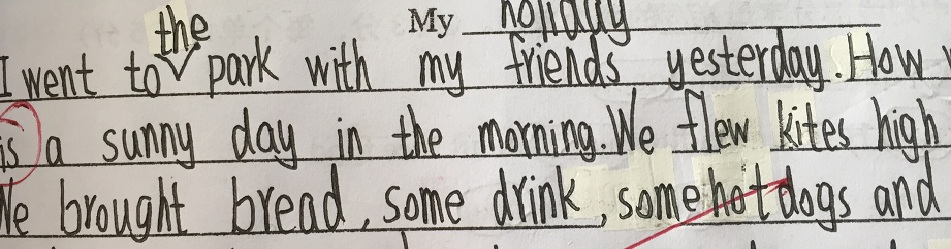 My holiday
I went to the park with my friends yesterday. How
is a sunny day in the morning. We flew kites high
We brought bread, some drink, some hot dogs and